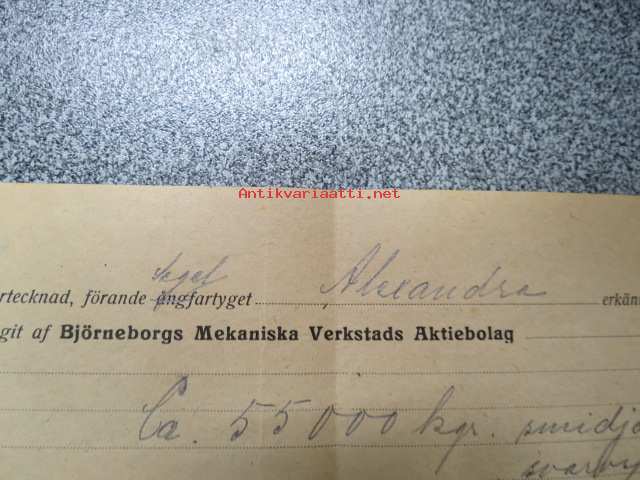 Antikvariaatti.net
segel
rtecknad, förande ångfartyget Alexandra erkän
git af Björneborgs Mekaniska Verkstads Aktiebolag
Ca. 55000 kgr. smidjä
svarv